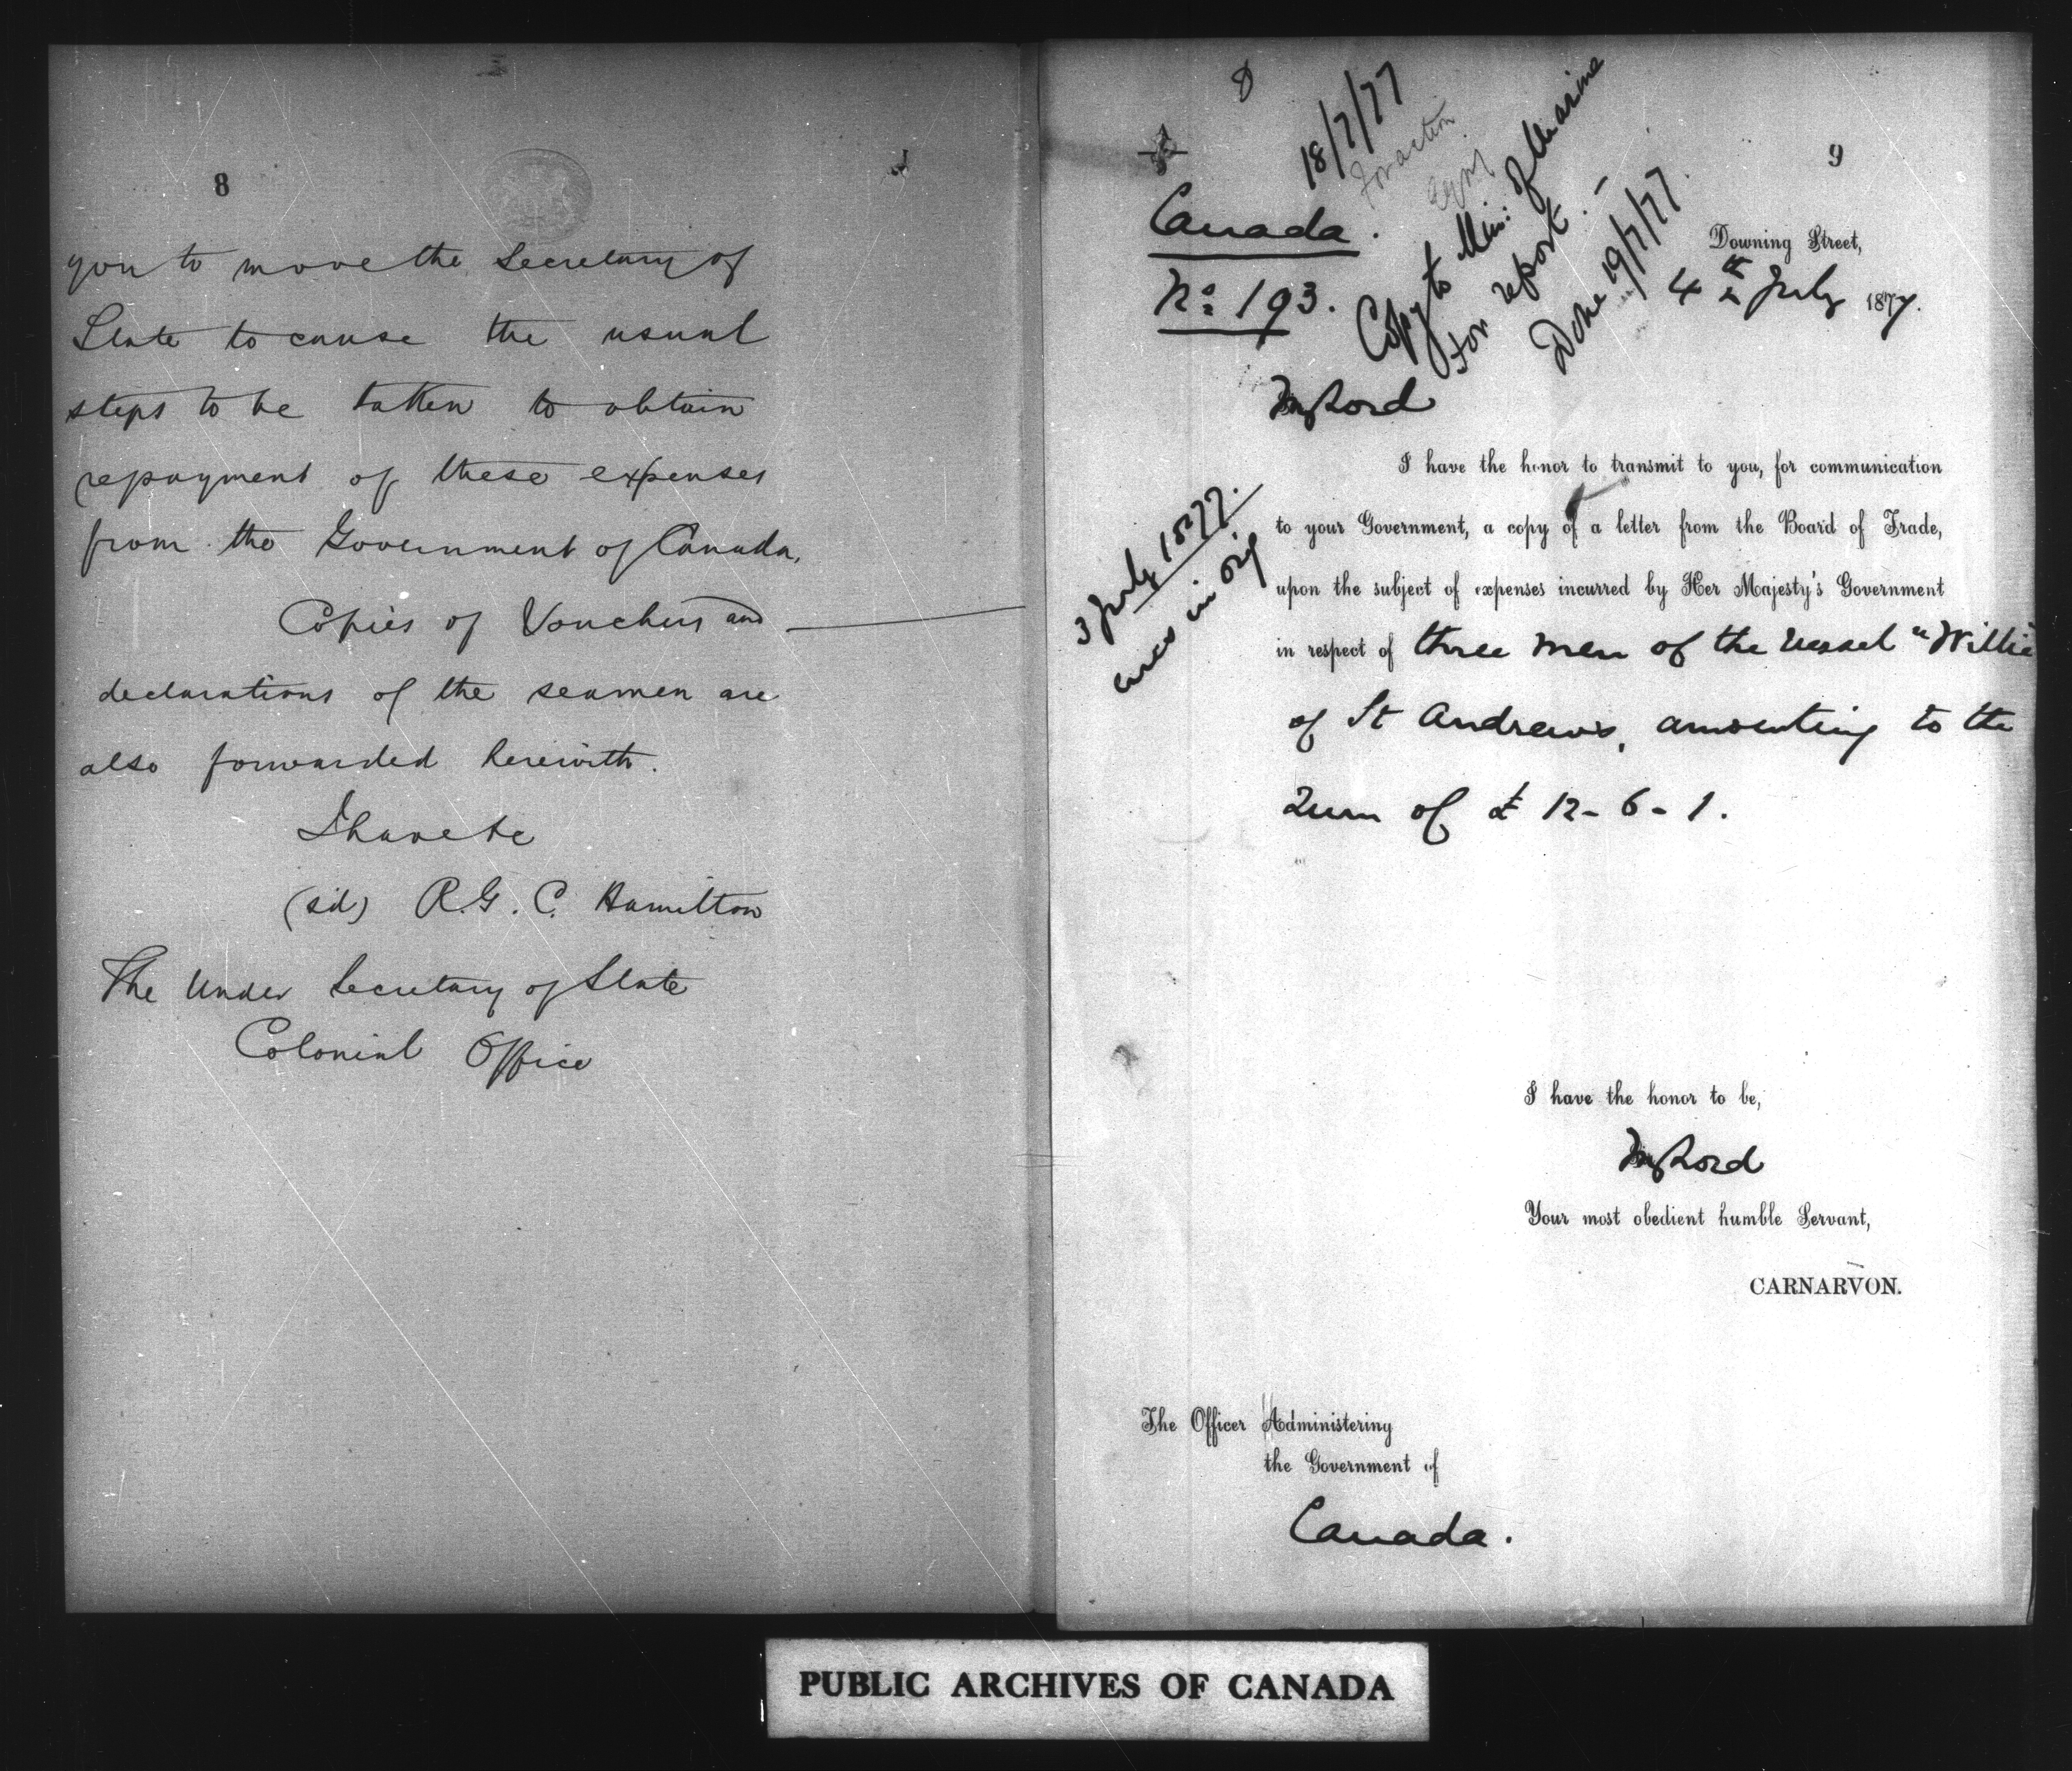 8
you to move the Secretary of
State to cause the usual
steps to be taken to obtain
repayment of these expenses
from the Government of Canada.
Copies of Vouchers and
declarations of the seamen are
also forwarded herewith.
I have &c
(sd) R.G.C. Hamilton
The Under Secretary of State
Colonial Office
9
18/7/77
For action
Copy to Min: of Marine
for report. –
Done 19/7/77.
Canada.
No: 193.
Downing Street,
4th July 1877.
My Lord
I have the honor to transmit to you, for communication
to your Government, a copy of a letter from the Board of Trade,
3 July 1877.
encs in orig
upon the subject of expenses incurred by Her Majesty's Government
in respect of three men of the vessel "Willie
of St Andrews, amounting to the
Sum of £12-6-1.
I have the honor to be,
My Lord
Your most obedient humble Servant,
CARNARVON.
The Officer Administering
the Government of
Canada.
PUBLIC ARCHIVES OF CANADA